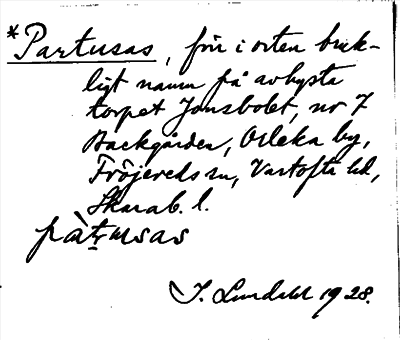 *Partusas, förr i orten bruk-
ligt namn på avhysta
torpet Jonsbolet, nr 7
Backgården, Orleka by,
Fröjereds sn, Vartofta hd,
Skarab. l.
pàtusas
J. Lundahl 1928.